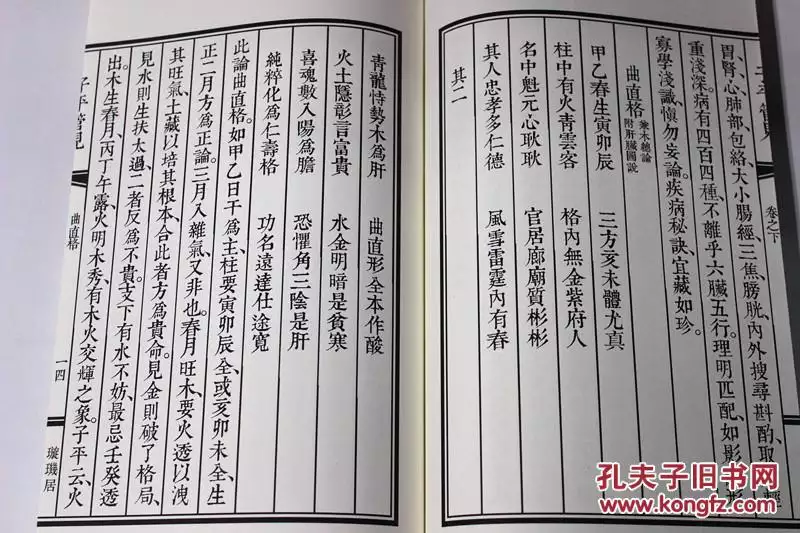 胃、腎、心肺部、包絡、大小腸經、三焦、膀胱、內外搜尋斟酌、取
重淺深。病有四百四種、不離乎六臟五行。理明匹配、如影
寡學淺識、慎勿妄論。疾病秘訣、宜藏如珍。
曲直格 兼木總論 附肝臟圖說
甲乙春生寅卯辰 三方亥未體尤真
柱中有火青雲客 格內無金紫府人
名中魁元心耿耿 官居廊廟質彬彬
其人忠孝多仁德 風雪雷霆內有春
其二
卷之下
青龍恃勢木為肝 曲直形全本作酸
火土隱彰言富貴 水金明暗是貧寒
喜魂數入陽為膽 恐懼角三陰是肝
純粹化為仁壽格 功名遠達仕途寬
此論曲直格。如甲乙日干為主、柱要寅卯辰全、或亥卯未全、生
正二月方為正論。三月入雜氣、又非也。春月旺木、要火透以洩
其旺氣、土藏以培其根本、合此者方為貴命。見金則破了格局、
見水則生扶太過、二者反為不貴。支下有水不妨、最忌壬癸透
出。木生春月、丙丁午露、火明木秀、有木火交輝之象。子平云、火
子平管見
曲直格
一四
璇璣居
孔夫子旧书网
www.kongfz.com